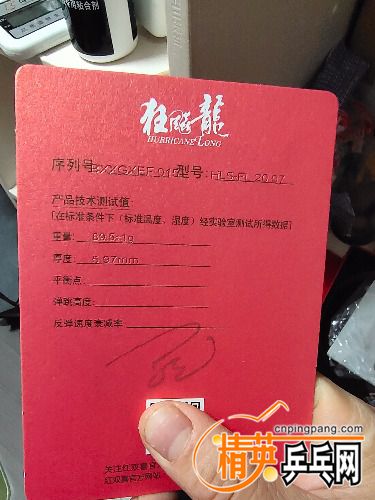 狂飚龍
HURRICANE LONG
序列号 型号:
产品技术测试值:
[在标准条件下(标准温度、湿度)经实验室测试所得数据]
重量: 89.5±1g
厚度: 5.97mm
平衡点:
弹跳高度:
反弹速度衰减率
关注红双喜官
红双喜官方网站
cnpingpang.com
精英乒乓网